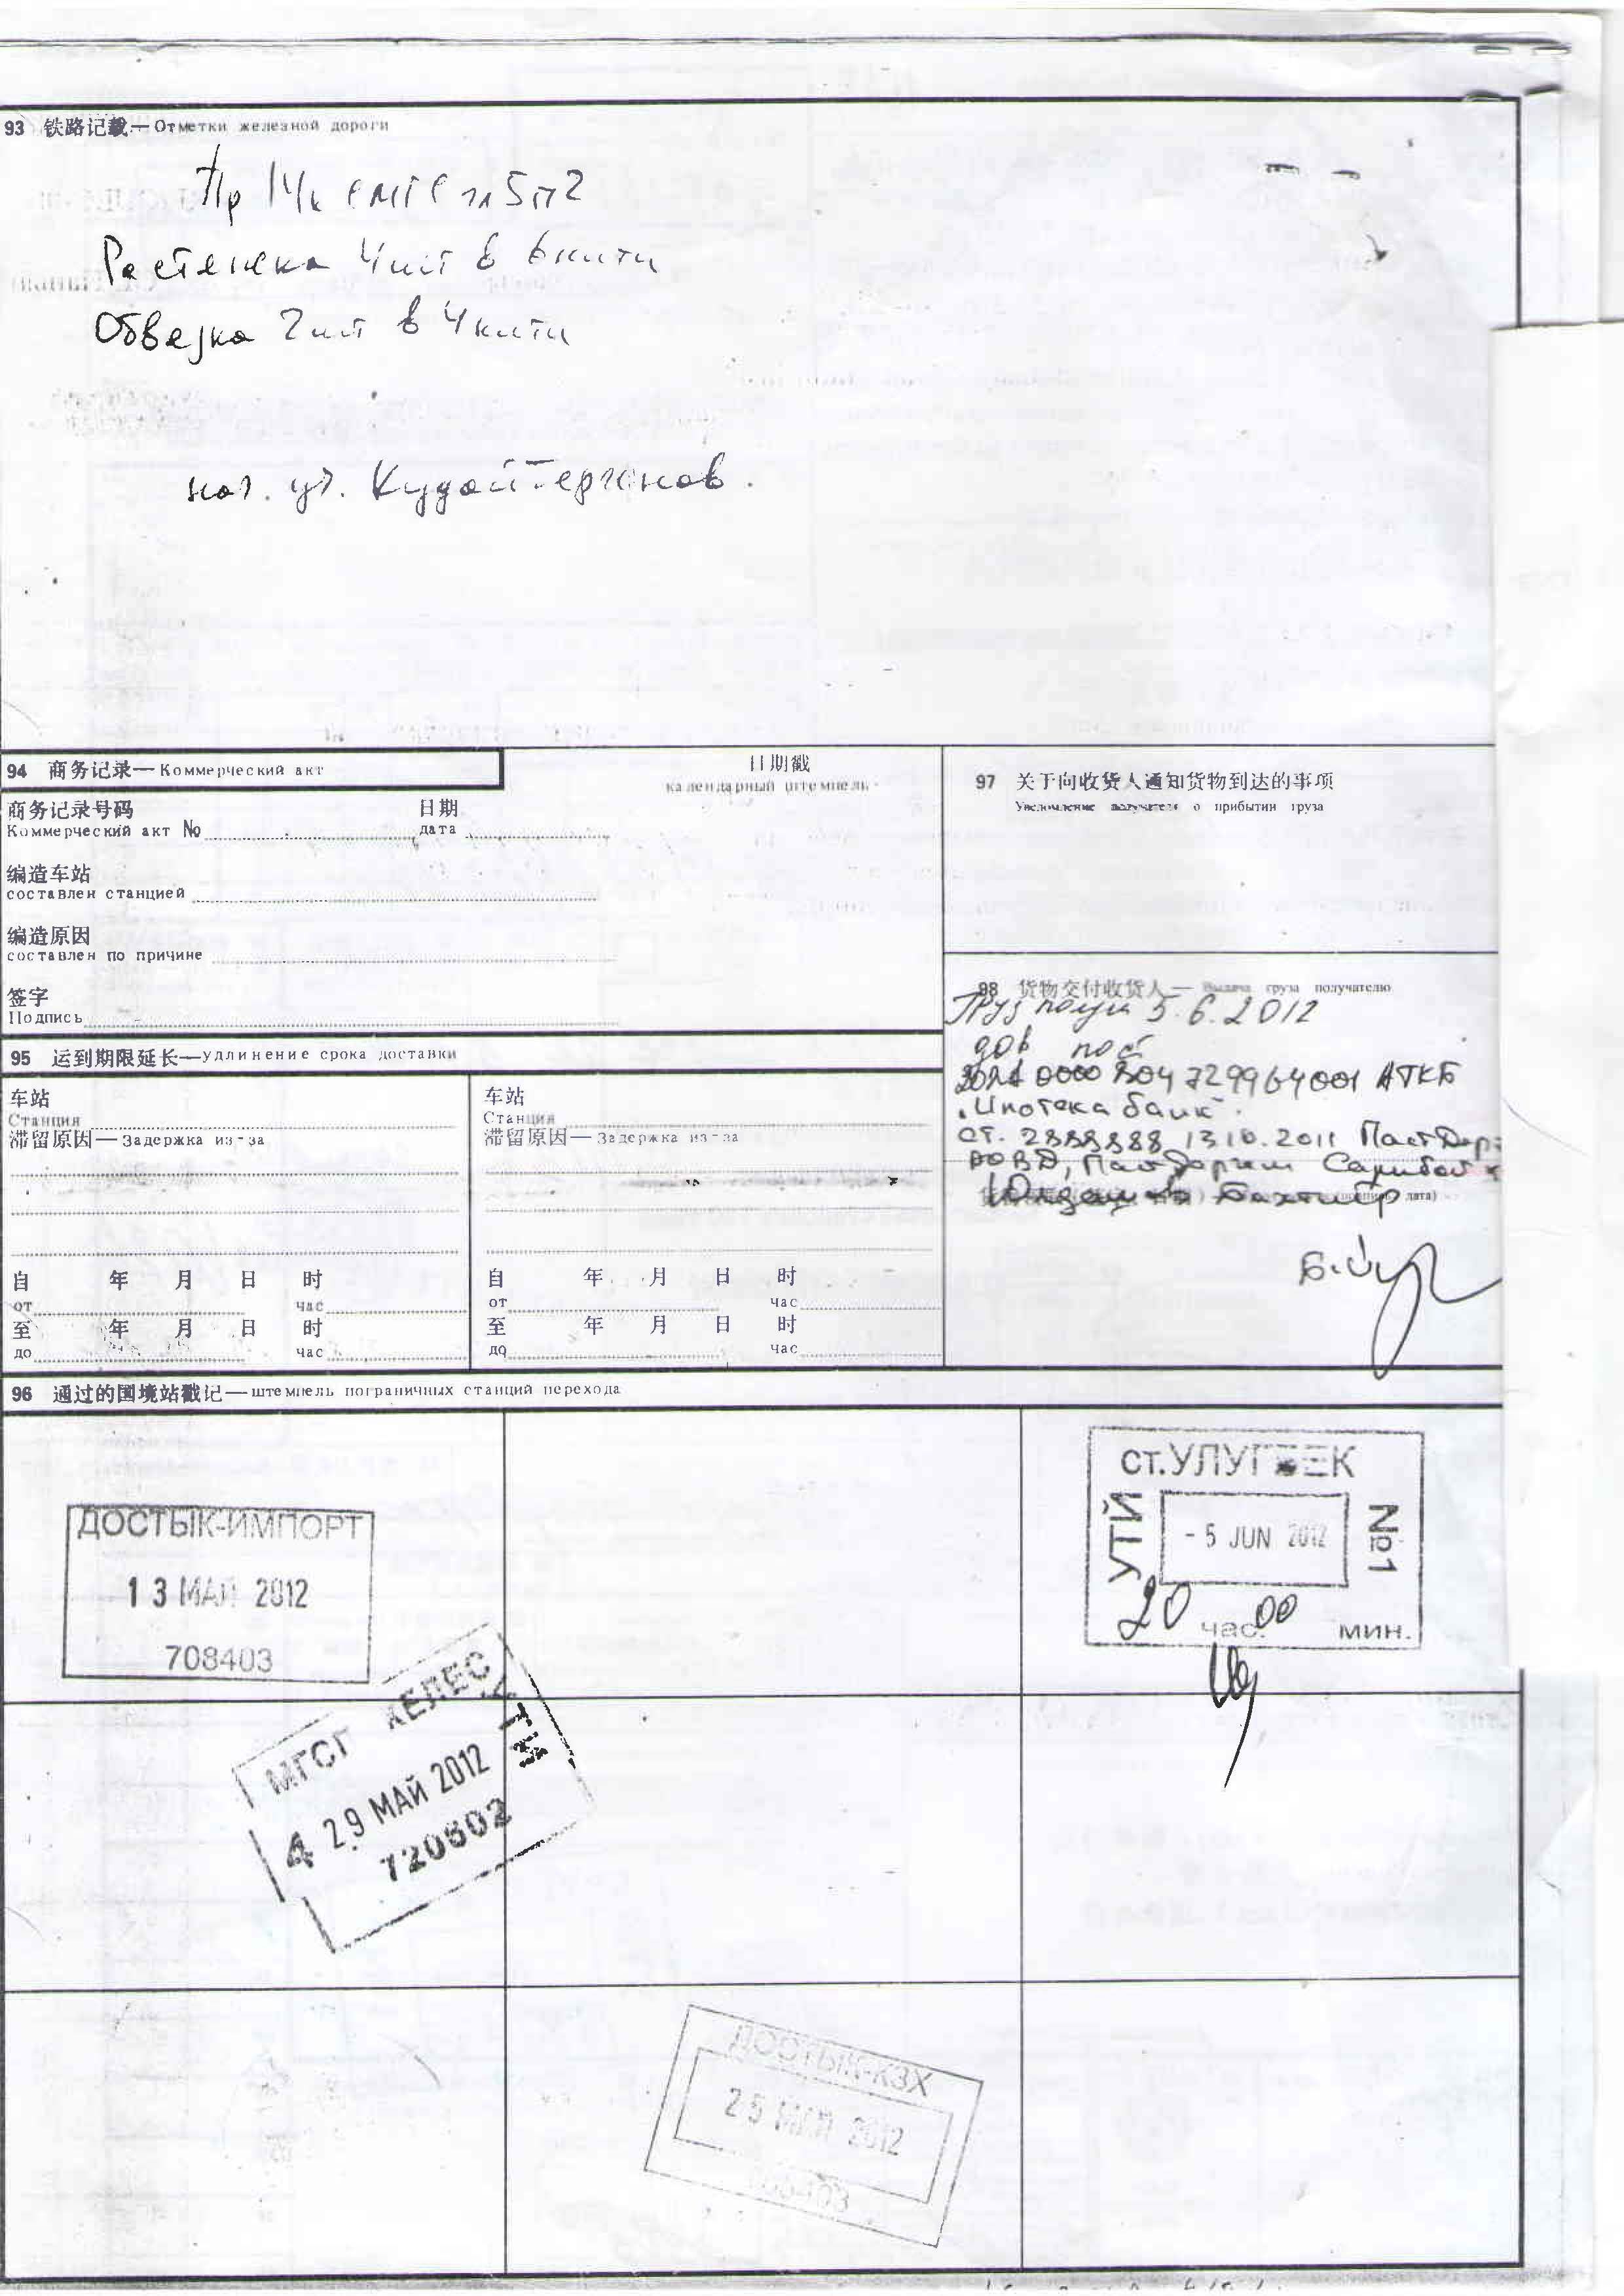 93 铁路记载—Отметки железной дороги
Пр 14к СМГС пл 5 п2
Растяжка 4шт в 6 нити
Обвязка 2шт в 4 нити
94 商务记录—Коммерческий акт
日期戳
календарный штемпель
商务记录号码 日期
Коммерческий акт No дата
编造车站
составлен станцией
编造原因
составлен по причине
签字
Подпись
97 关于向收货人通知货物到达的事项
Уведомление получателя о прибытии груза
98 货物交付收货人— Выдача груза получателю
Груз получ 5.6.2012
дов пос
729964001 АТКБ
"Ипотека банк"
от. 13.10.2011 Паст Дарг
РОВД, Пастдаргом
Бахтиёр
дата)
95 运到期限延长—удлинение срока доставки
车站
Станция
滞留原因—Задержка из-за
自 年 月 日 时
от час
至 年 月 日 时
до час
车站
Станция
滞留原因—Задержка из-за
自 年 月 日 时
от час
至 年 月 日 时
до час
96 通过的国境站戳记—штемпель пограничных станций перехода
ДОСТЫК-ИМПОРТ
13 МАЙ 2012
708403
ст.УЛУГБЕК
УТЙ
- 5 JUN 2012
№1
20 час. 00 мин.
МГСП КЕЛЕС УТИ
4 29 МАЙ 2012
720602
ДОСТЫК-КЗХ
25 МАЙ 2012